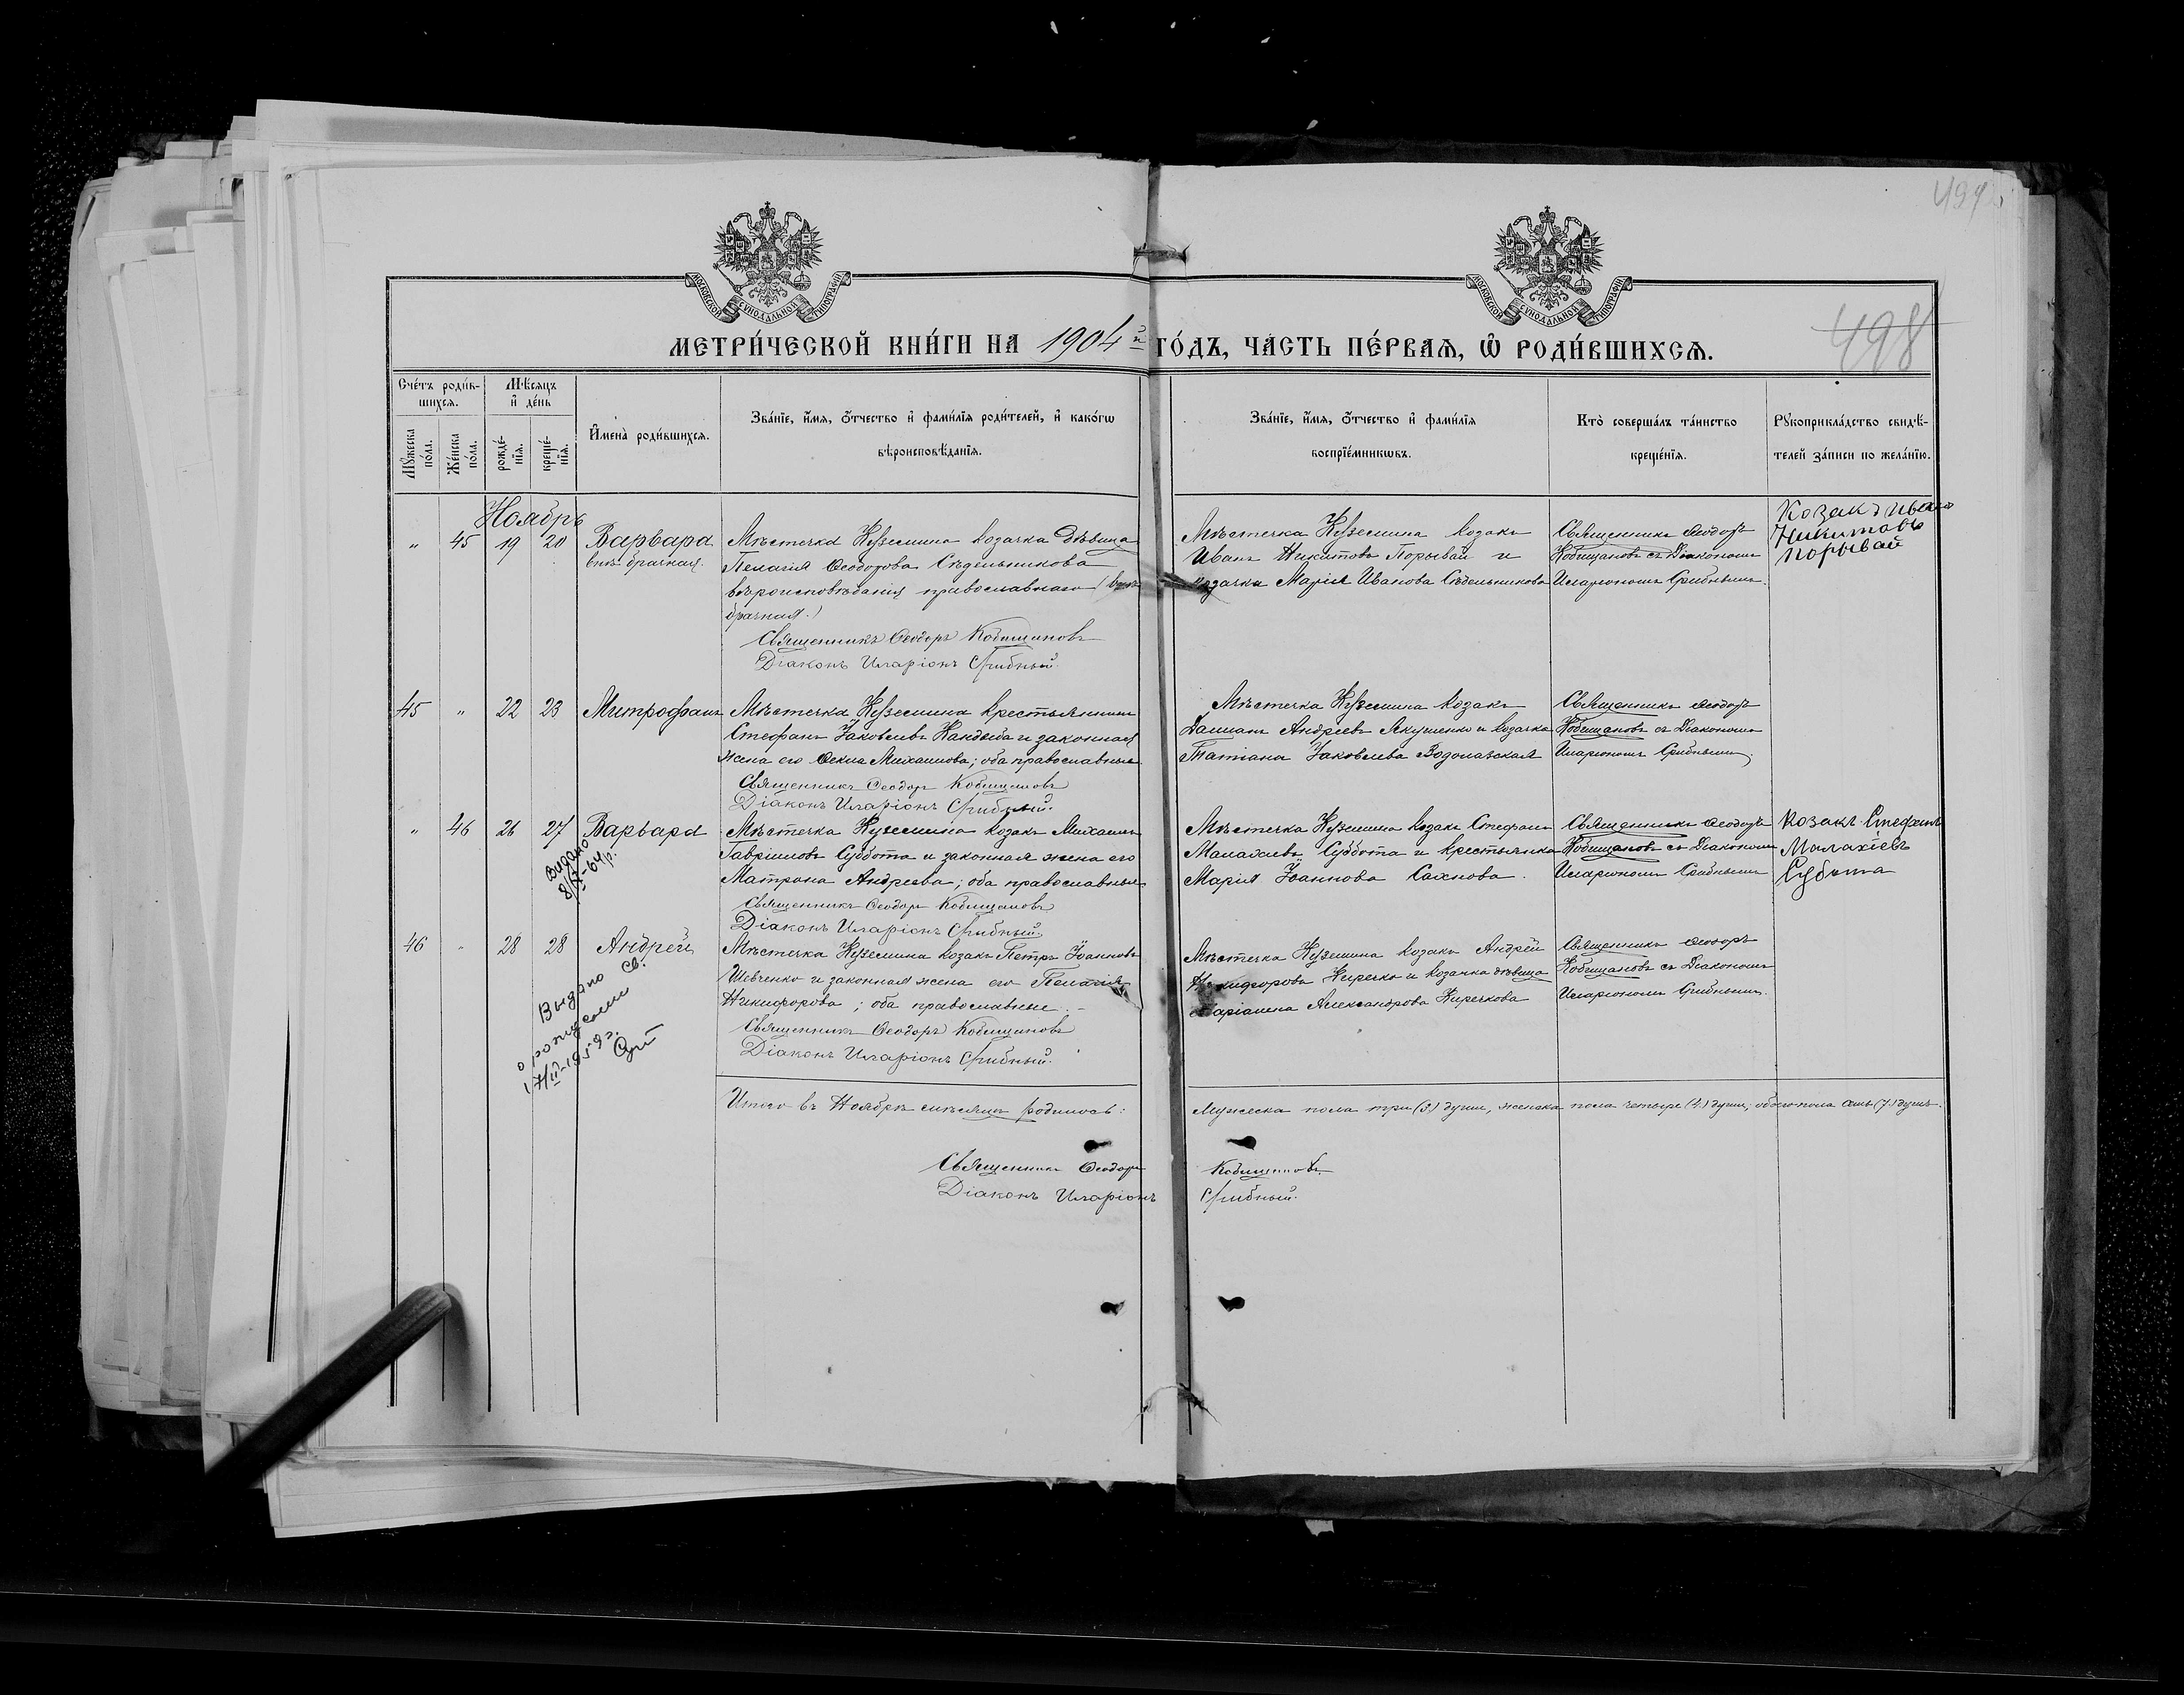 497
498
МОСКОВСКОЙ СѴНОДАЛЬНОЙ ТИПОГРАФІИ
МОСКОВСКОЙ СѴНОДАЛЬНОЙ ТИПОГРАФІИ
МЕТРИ́ЧЕСКОЙ КНИ́ГИ НА 1904й ГО́ДЪ, ЧА́СТЬ ПЕ́РВАЯ, Ѡ РОДИ́ВШИХСЯ.
Сче́тъ роди́в-
шихся.
Мѣ́сяцъ
и де́нь
Му́жеска
по́ла.
Же́нска
по́ла.
рожде́-
нїя.
креще́-
нїя.
Имена̀ роди́вшихся.
Зва́нїе, и́мя, о́тчество и фами́лїя роди́телей, и како́гѡ
вѣроисповѣ́данїя.
Зва́нїе, и́мя, о́тчество и фами́лїя
воспрїе́мникѡвъ.
Кто̀ соверша́лъ та́инство
креще́нїя.
Рукоприкла́дство свидѣ́-
телей за́писи по жела́нїю.
Ноябрь
" 45 19 20 Варвара
внѣ брачная.
Мѣстечка Куземина козачка дѣвица
Пелагія Ѳеодорова Сѣдельникова
вѣроисповѣданія православнаго (внѣ
брачная.)
Священникъ Ѳеодоръ Кобищановъ
Діаконъ Иларіонъ Срибный.
Мѣстечка Куземина козакъ
Иванъ Никитовъ Порывай и
козачка Марія Иванова Сѣдельникова
Священникъ Ѳеодоръ
Кобищановъ съ Діакономъ
Иларіономъ Срибнымъ.
Козакъ Иванъ
Никитовъ
Порывай
45 " 22 23 Митрофанъ
Мѣстечка Куземина крестьянинъ
Стефанъ Іаковлевъ Кандыба и законная
жена его Ѳекла Михаилова; оба православные.
Священникъ Ѳеодоръ Кобищановъ
Діаконъ Иларіонъ Срибный.
Мѣстечка Куземина козакъ
Даміанъ Андреевъ Якушенко и козачка
Татіана Іаковлева Водолазская
Священникъ Ѳеодоръ
Кобищановъ съ Діакономъ
Иларіономъ Срибнымъ.
" 46 26 27 Варвара
Видано
8/IX-64р.
Мѣстечка Куземина козакъ Михаилъ
Гавріиловъ Суббота и законная жена его
Матрона Андреева; оба православные.
Священникъ Ѳеодоръ Кобищановъ
Діаконъ Иларіонъ Срибный.
Мѣстечка Куземина козакъ Стефанъ
Малахіевъ Суббота и крестьянка
Марія Іоаннова Сахнова.
Священникъ Ѳеодоръ
Кобищановъ съ Діакономъ
Иларіономъ Срибнымъ
Козакъ Стефанъ
Малахіевъ
Субота
46 " 28 28 Андрей
Выдано св.
о рождении
17/IV-1959г.
Мѣстечка Куземина козакъ Петръ Іоанновъ
Шевченко и законная жена его Пелагія
Никифорова; оба православные.
Священникъ Ѳеодоръ Кобищановъ
Діаконъ Иларіонъ Срибный.
Мѣстечка Куземина козакъ Андрей
Никифоровъ Киречко и козачка дѣвица
Маріамна Александрова Киречкова
Священникъ Ѳеодоръ
Кобищановъ съ Діакономъ
Иларіономъ Срибнымъ.
Итого въ Ноябрѣ мѣсяцѣ родилось: мужеска пола три (3) души, женска пола четыре (4) души, обоего пола семь (7) душъ.
Священникъ Ѳеодоръ Кобищановъ.
Діаконъ Иларіонъ Срибный.